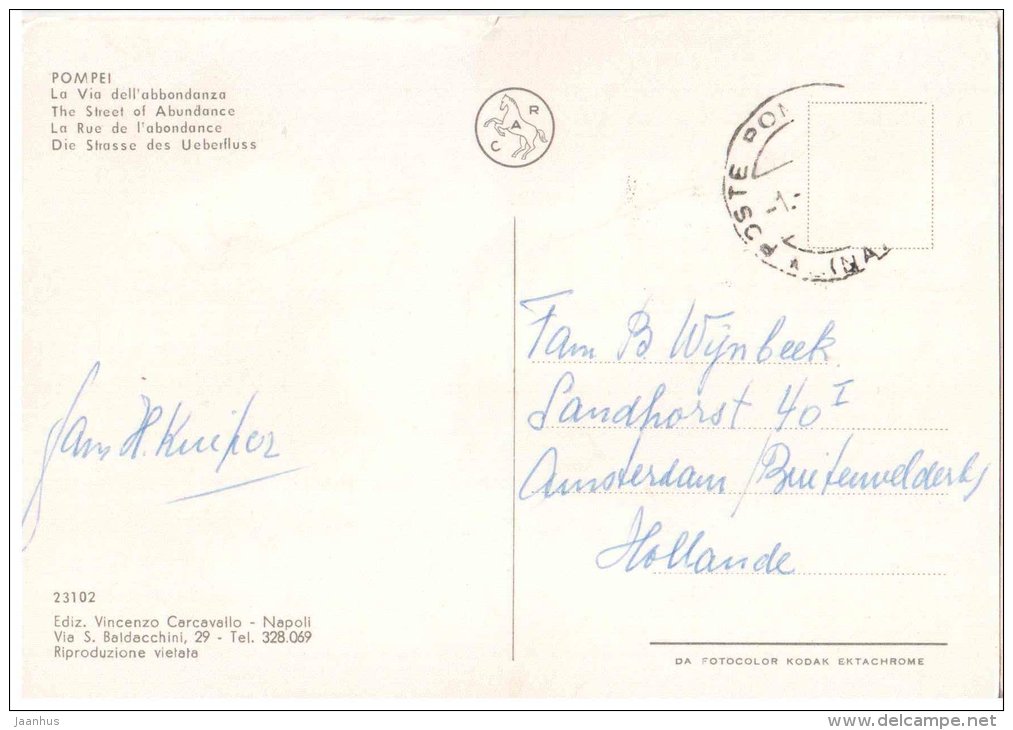 POMPEI
La Via dell'abbondanza
The Street of Abundance
La Rue de l'abondance
Die Strasse des Ueberfluss
C A R
POSTE POM
(NA
-1.
Fam B. Wijnbeek
Landhorst 40 I
Amsterdam/Buitenveldert
Hollande
Jan H. Kuiper
23102
Ediz. Vincenzo Carcavallo - Napoli
Via S. Baldacchini, 29 - Tel. 328.069
Riproduzione vietata
DA FOTOCOLOR KODAK EKTACHROME
Jaanhus
www.delcampe.net